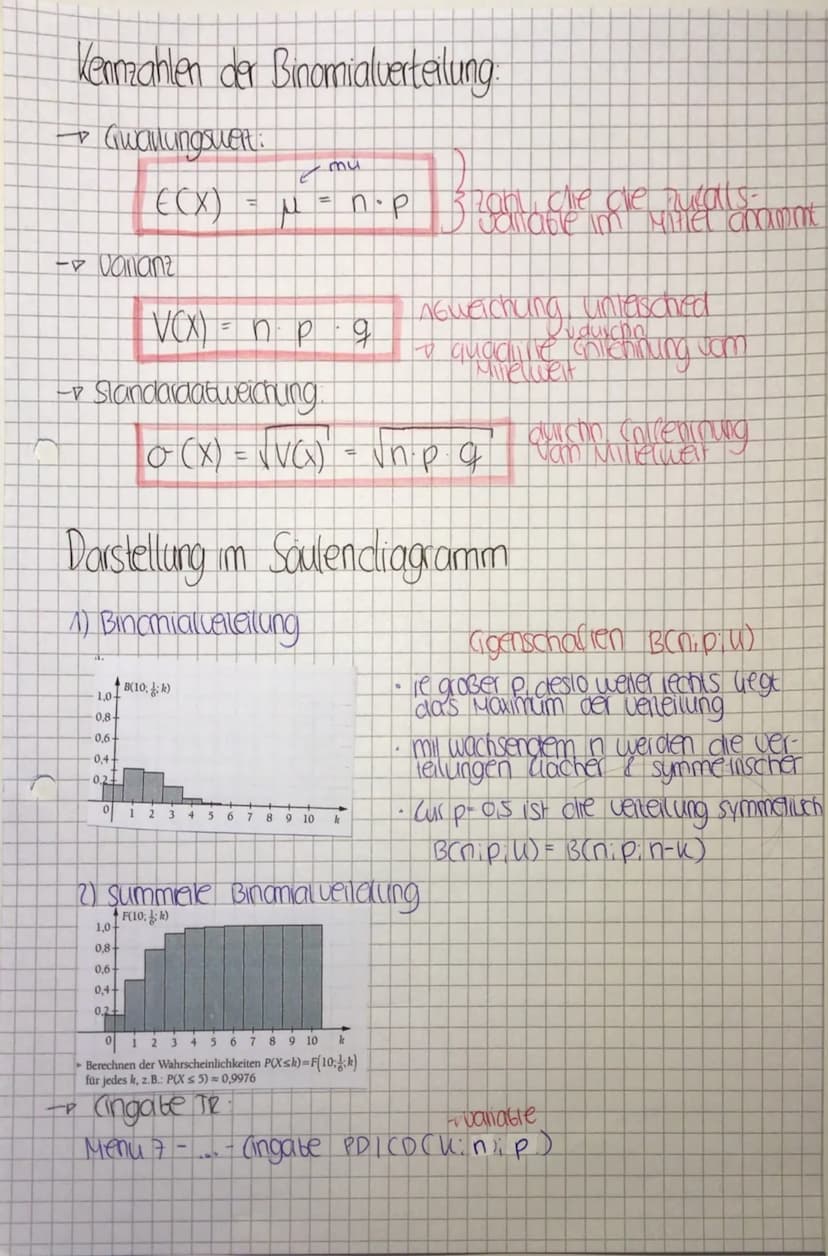 Kennzahlen der Binomialverteilung:
→ Erwartungswert:
mu
E(X) = μ = n · p
Zahl, die die Zufalls-
variable im Mittel annimmt
→ Varianz
V(X) = n · p · q
Abweichung, Unterschied
durschn.
→ quadr. Entfernung vom
Mittelwert
→ Standardabweichung:
σ(X) = √V(X) = √n · p · q
durschn. Entfernung
vom Mittelwert
Darstellung im Säulendiagramm
1) Binomialverteilung
Eigenschaften B(n;p;k)
B(10; 1/6; k)
1,0
0,8
0,6
0,4
0,2
0 1 2 3 4 5 6 7 8 9 10 k
• je größer p, desto weiter rechts liegt
das Maximum der Verteilung
• mit wachsendem n werden die Ver-
teilungen flacher & symmetrischer
• für p=0,5 ist die Verteilung symmetrisch
B(n;p;k) = B(n;p;n-k)
2) summierte Binomialverteilung
F(10; 1/6; k)
1,0
0,8
0,6
0,4
0,2
0 1 2 3 4 5 6 7 8 9 10 k
▸ Berechnen der Wahrscheinlichkeiten P(X≤k)=F(10; 1/6; k)
für jedes k, z.B.: P(X ≤ 5) ≈ 0,9976
→ Eingabe TR:
→ Variable
Menu 7 - ... - Eingabe PD/CD (k; n; p)